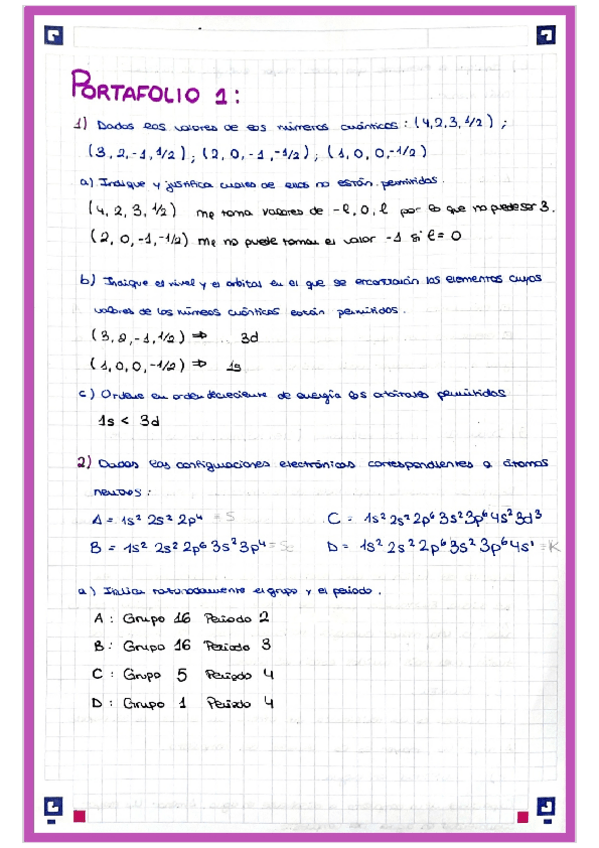 PORTAFOLIO 1:
1) Dados los valores de los números cuánticos: (4,2,3,1/2);
(3,2,-1,1/2); (2,0,-1,-1/2); (1,0,0,-1/2)
a) Indique y justifica cuáles de ellos no están permitidos.
(4,2,3,1/2) me toma valores de -l,0,l por lo que no puede ser 3.
(2,0,-1,-1/2) me no puede tomar el valor -1 si l=0
b) Indique el nivel y el orbital en el que se encontrarán los elementos cuyos
valores de los números cuánticos están permitidos.
(3,2,-1,1/2) ⇒ 3d
(1,0,0,-1/2) ⇒ 1s
c) Ordene en orden decreciente de energía los orbitales permitidos
1s < 3d
2) Dadas las configuraciones electrónicas correspondientes a átomos
neutros:
A = 1s² 2s² 2p⁴ = S C = 1s² 2s² 2p⁶ 3s² 3p⁶ 4s² 3d³
B = 1s² 2s² 2p⁶ 3s² 3p⁴ D = 1s² 2s² 2p⁶ 3s² 3p⁶ 4s¹ = K
a) Indica razonadamente el grupo y el periodo.
A: Grupo 16 Periodo 2
B: Grupo 16 Periodo 3
C: Grupo 5 Periodo 4
D: Grupo 1 Periodo 4